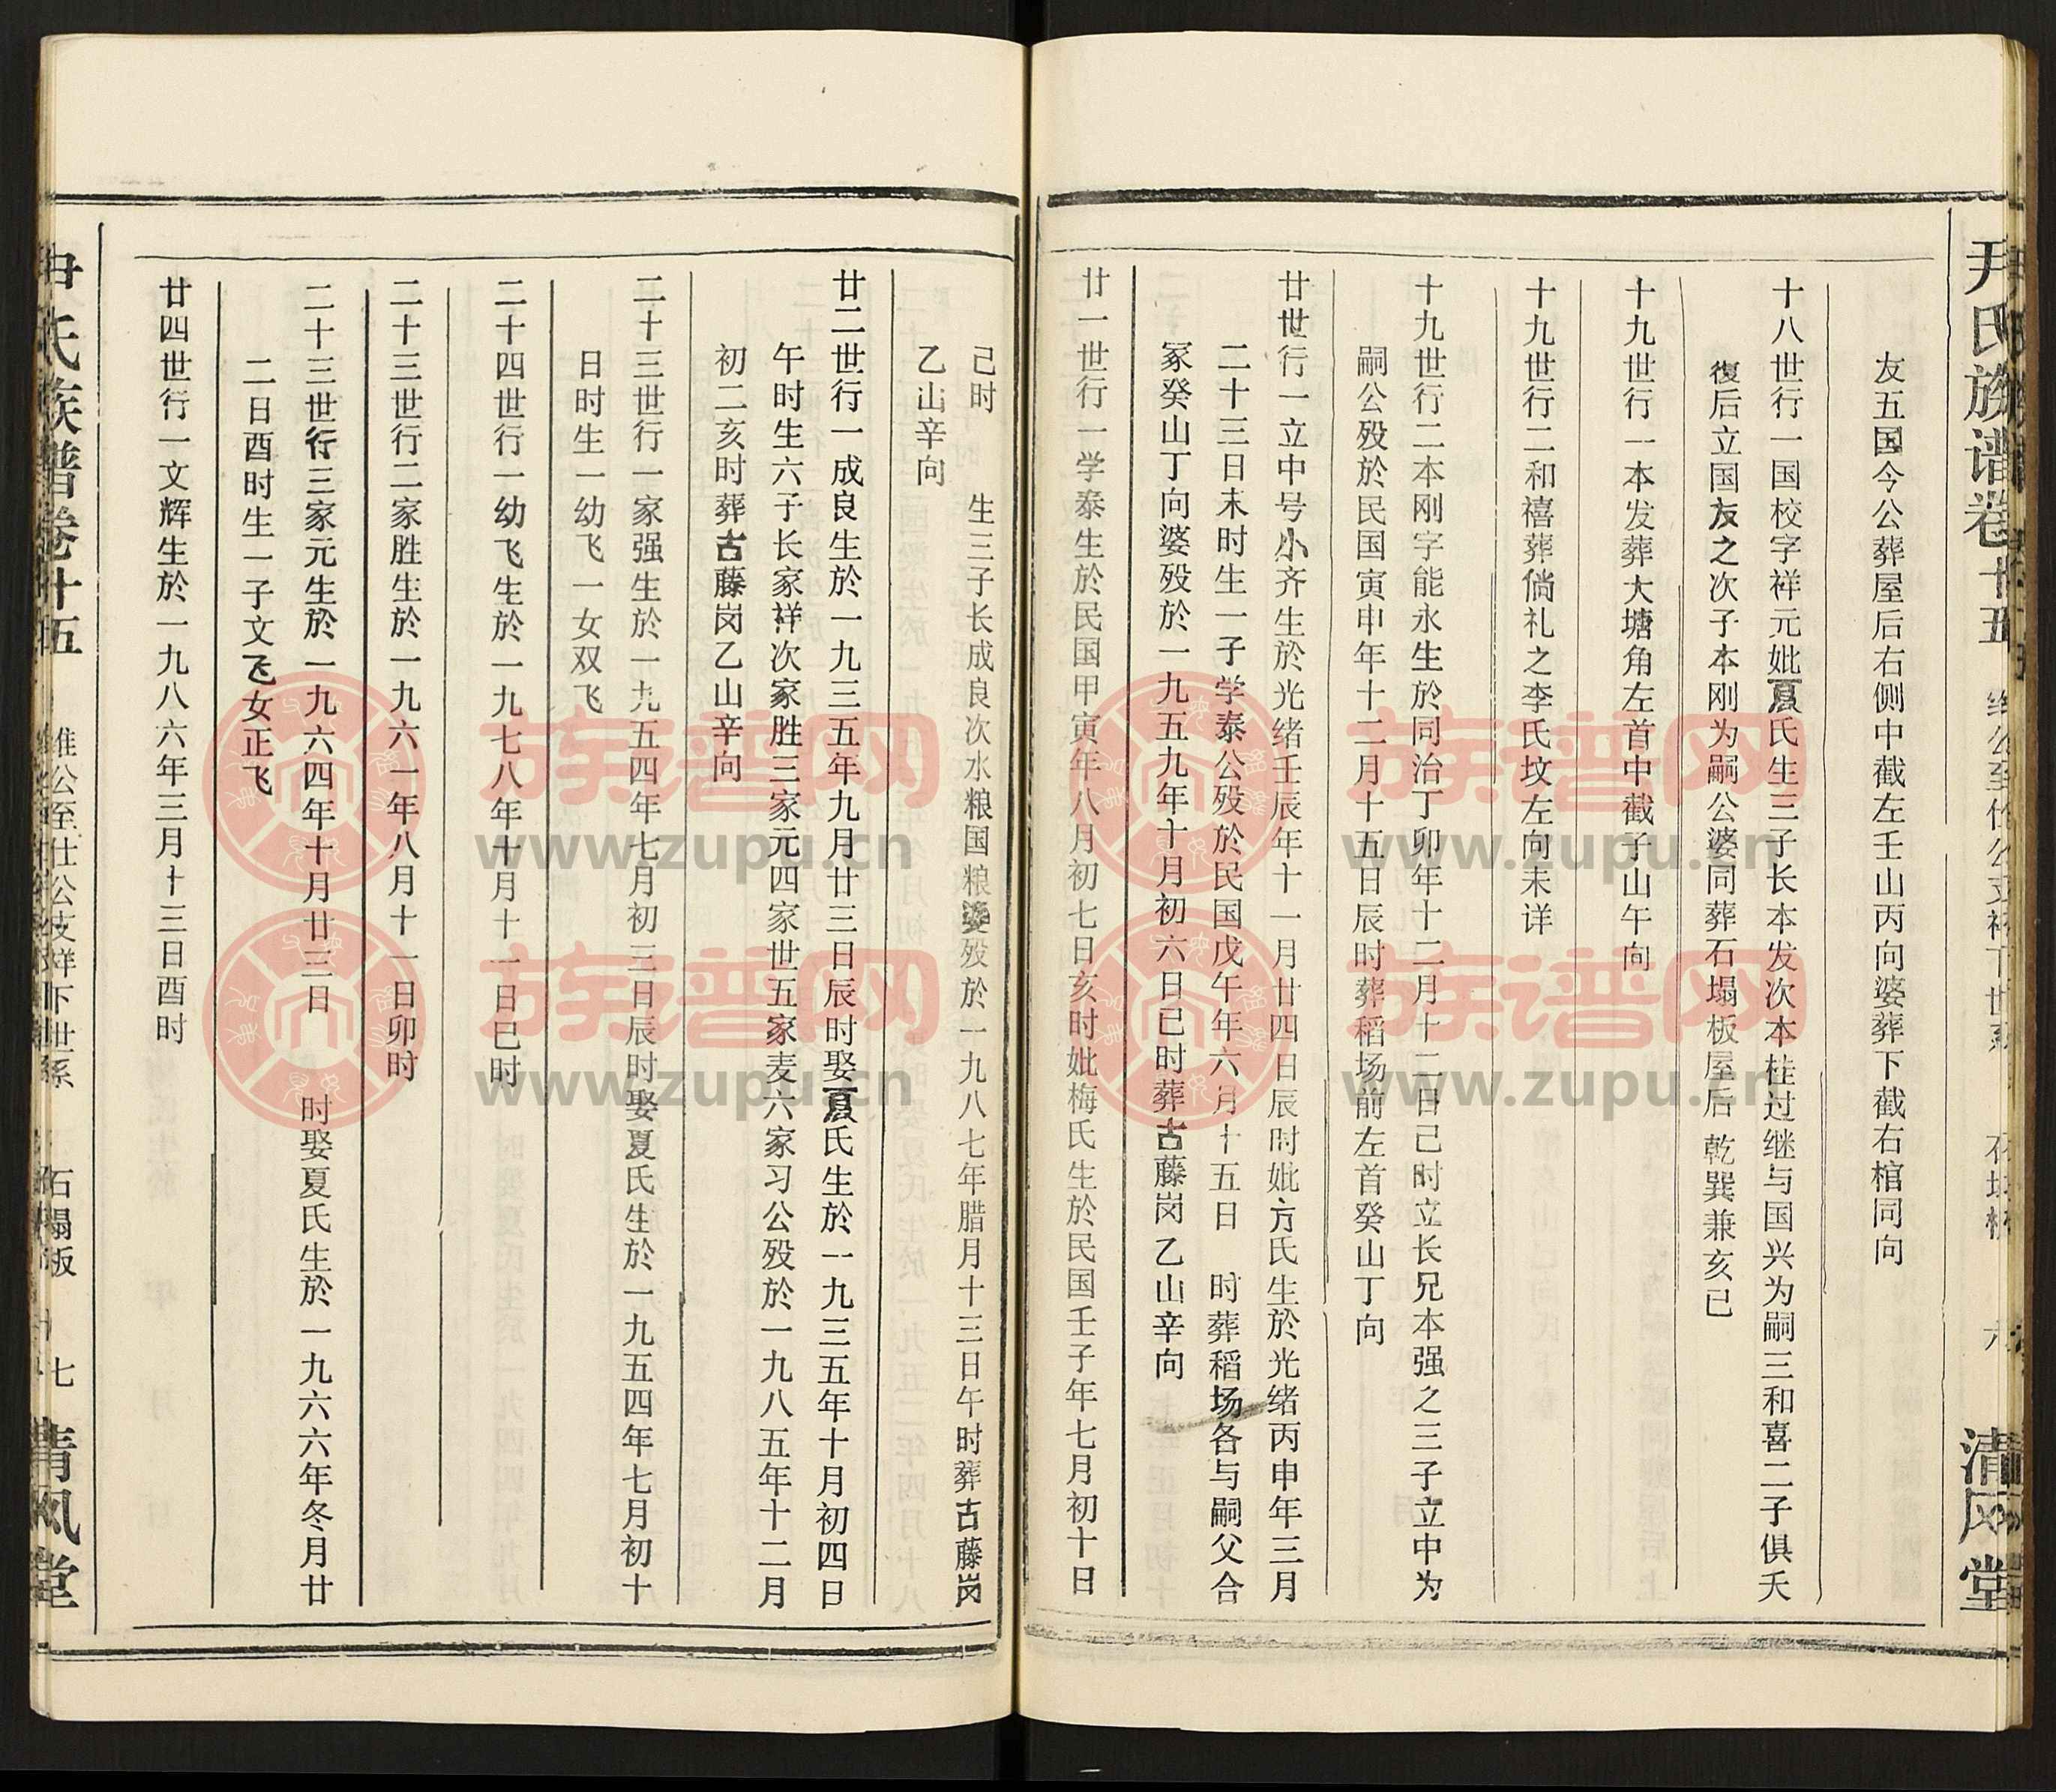 尹氏族谱卷十五
清风堂
友五国今公葬屋后右侧中截左壬山丙向婆葬下截右棺同向
十八世行一国校字祥元妣夏氏生三子长本发次本桂过继与国兴为嗣三和喜二子俱夭
復后立国友之次子本刚为嗣公婆同葬石塌板屋后 乾巽兼亥已
十九世行一本发葬大塘角左首中截子山午向
十九世行二和禧葬倘礼之李氏坟左向未详
十九世行二本刚字能永生於同治丁卯年十二月十二日己时立长兄本强之三子立中为
嗣公殁於民国寅申年十二月十五日辰时葬稻场前左首癸山丁向
廿世行一立中号小齐生於光绪壬辰年十一月廿四日辰时妣方氏生於光绪丙申年三月
二十三日未时生一子学泰公殁於民国戊午年六月十五日 时葬稻场各与嗣父合
冢癸山丁向婆殁於一九五九年十月初六日已时葬古藤岗乙山辛向
廿一世行一学泰生於民国甲寅年八月初七日亥时妣梅氏生於民国壬子年七月初十日
己时 生三子长成良次水粮国粮婆殁於一九八七年腊月十三日午时葬古藤岗
乙山辛向
廿二世行一成良生於一九三五年九月廿三日辰时娶夏氏生於一九三五年十月初四日
午时生六子长家祥次家胜三家元四家世五家麦六家习公殁於一九八五年十二月
初二亥时葬古藤岗乙山辛向
二十三世行一家强生於一九五四年七月初三日辰时娶夏氏生於一九五四年七月初十
日时生一幼飞一女双飞
二十四世行一幼飞生於一九七八年十月十一日已时
二十三世行二家胜生於一九六一年八月十一日卯时
二十三世行三家元生於一九六四年十月廿三日 时娶夏氏生於一九六六年冬月廿
二日酉时生一子文飞女正飞
廿四世行一文辉生於一九八六年三月十三日酉时
尹氏族谱卷十五
公至仕公支祥下世系
石塌板
七
清风堂
族谱网
www.zupu.cn
族谱网
www.zupu.cn
族谱网
www.zupu.cn
族谱网
www.zupu.cn